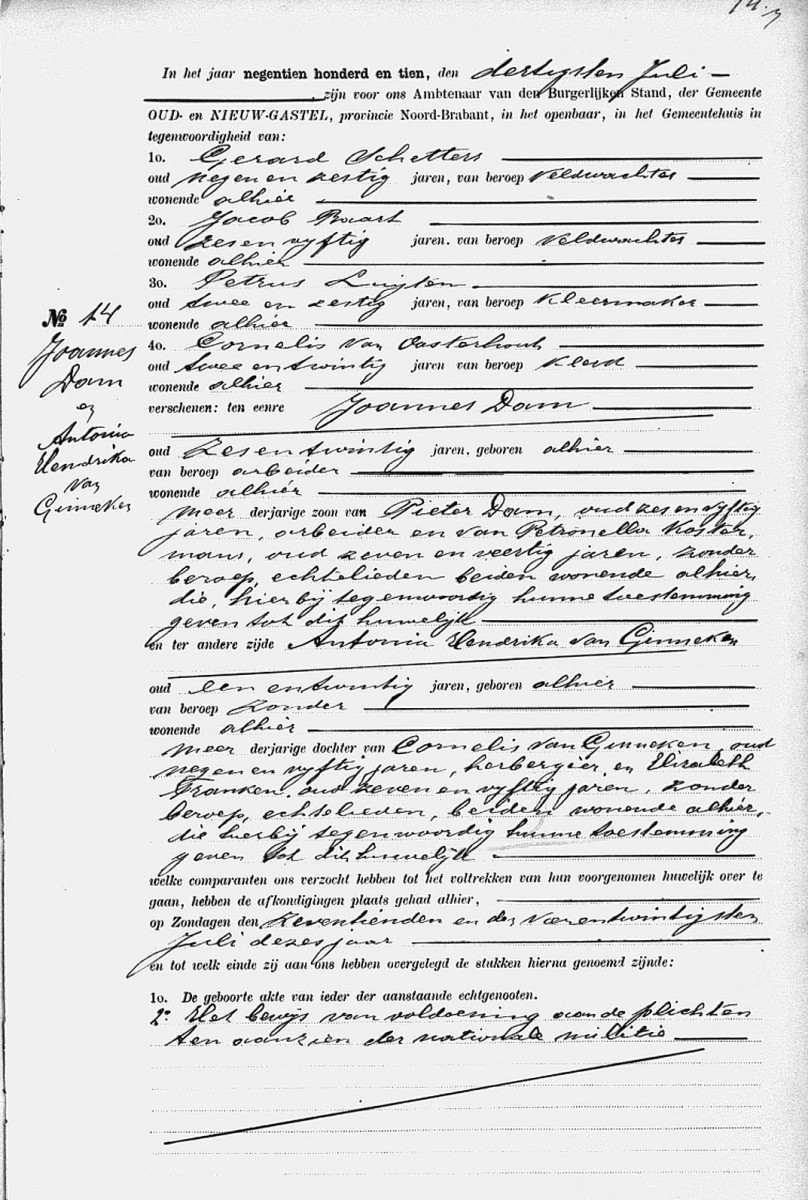 In het jaar negentien honderd en tien, den dertigsten Juli
zijn voor ons Ambtenaar van den Burgerlijken Stand, der Gemeente
OUD- en NIEUW-GASTEL, provincie Noord-Brabant, in het openbaar, in het Gemeentehuis in
tegenwoordigheid van:
1o. Gerard Schetters
oud negen en zestig jaren, van beroep Veldwachter
wonende alhier
2o. Jacob Baart
oud zes en vyftig jaren. van beroep Veldwachter
wonende alhier
3o. Petrus Luijten
oud twee en zestig jaren, van beroep Kleermaker
wonende alhier
4o. Cornelis van Oosterhout
oud twee en twintig jaren van beroep Klerk
wonende alhier
verschenen: ten eenre Joannes Dam
№ 14
Joannes
Dam
en
Antonia
Hendrika
van
Ginneken
oud zes en twintig jaren, geboren alhier
van beroep arbeider
wonende alhier
meer derjarige zoon van Pieter Dam, oud zes en vyftig
jaren, arbeider en van Petronella Koster,
mans, oud zeven en veertig jaren, zonder
beroep, echtelieden beiden wonende alhier,
die, hierbij tegenwoordig hunne toestemming
geven tot dit huwelijk
en ter andere zijde Antonia Hendrika van Ginneken
oud een en twintig jaren, geboren alhier
van beroep zonder
wonende alhier
meer derjarige dochter van Cornelis van Ginneken, oud
negen en vyftig jaren, herbergier, en Elizabeth
Franken, oud zeven en vyftig jaren, zonder
beroep, echtelieden, beiden wonende alhier,
die hierbij tegenwoordig hunne toestemming
geven tot dit huwelijk
welke comparanten ons verzocht hebben tot het voltrekken van hun voorgenomen huwelijk over te
gaan, hebben de afkondigingen plaats gehad alhier,
op Zondagen den zeventienden en den vierentwintigsten
Juli dezes jaar
en tot welk einde zij aan ons hebben overgelegd de stukken hierna genoemd zijnde:
1o. De geboorte akte van ieder der aanstaande echtgenooten.
2o Het bewijs van voldoening aan de plichten
ten aanzien der nationale militie